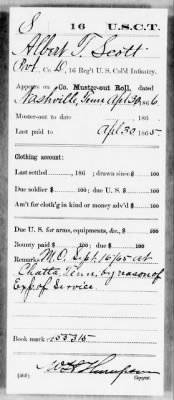 S 16 U.S.C.T.
Albert T. Scott
Pvt, Co. D, 16 Reg't U. S. Col'd Infantry.
Appears on Co. Muster-out Roll, dated
Nashville, Tenn Apl 30, 1866
Muster-out to date , 186 .
Last paid to Apl. 30, 1865.
Clothing account:
Last settled , 186 ; drawn since $ 100
Due soldier $ 100; due U. S. $ 100
Am't for cloth'g in kind or money adv'd $ 100
Due U. S. for arms, equipments, &c., $ 100
Bounty paid $ 100; due $ 100
Remarks: M.O. Sept. 16/65 at
Chatta, Tenn. by reason of
Exp. of Service.
Book mark:
Thompson
Copyist.